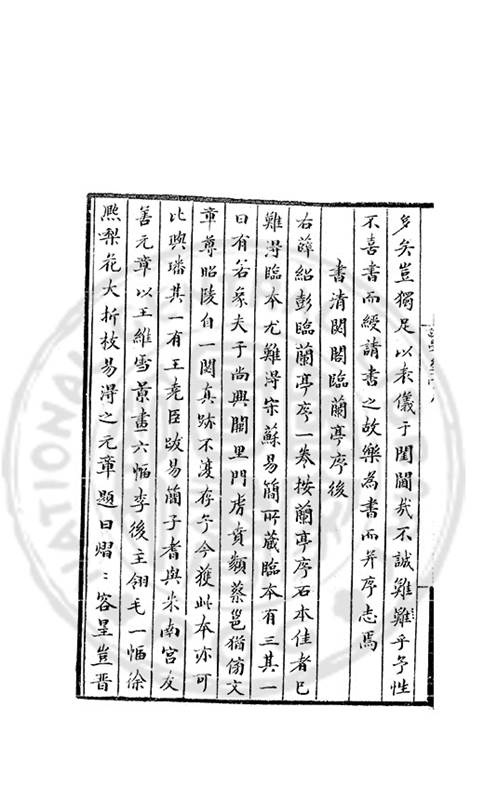 多矣豈獨足以表儀于閨閫哉不誠難難乎予性
不喜書而綬請書之故樂為書而并序志焉
書清閟閣臨蘭亭序後
右薛紹彭臨蘭亭序一卷按蘭亭序石本佳者已
難淂臨本尤難淂宋蘇易簡所藏臨本有三其一
曰有若象夫子尚興闕里門虎賁類蔡邕猶傋文
章尊昭陵自一閟真跡不復存予今獲此本亦可
比璵璠其一有王堯臣跋易蕳子耆與米南宮友
善元章以王維雪景畫六幅李後主翎毛一幅徐
熈梨花大折枝易淂之元章題曰熠〻客星豈晋